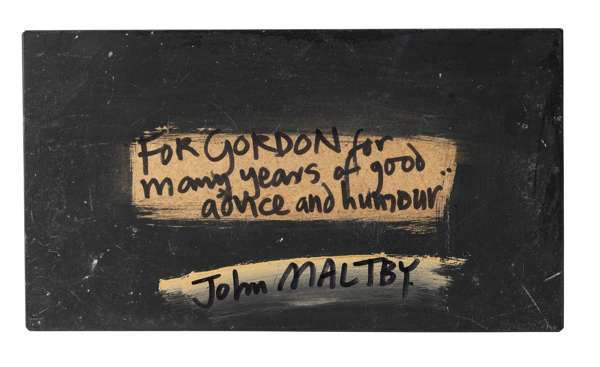 FOR GORDON for
many years of good ..
advice and humour
John MALTBY.